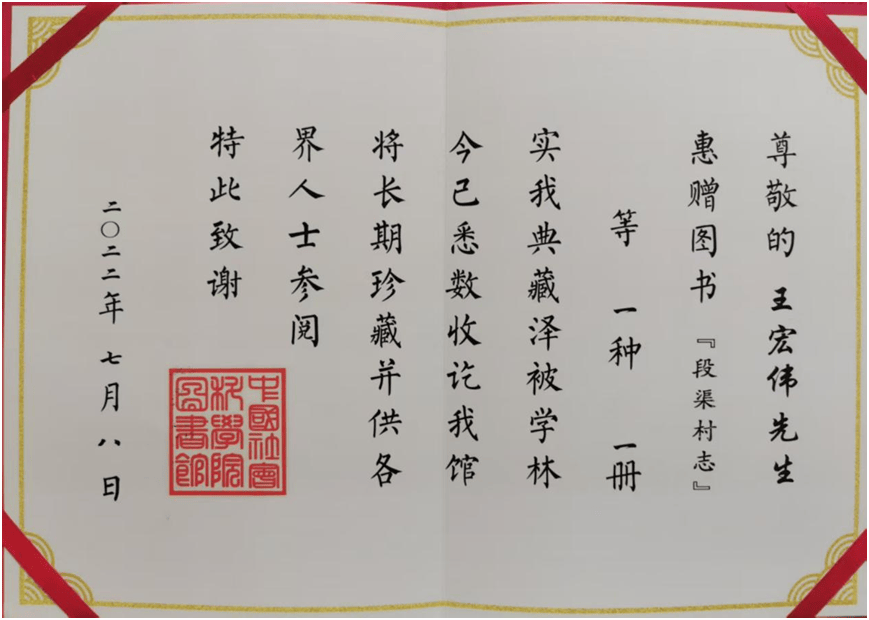 尊敬的 王宏伟先生
惠赠图书『段渠村志』
等 一种 一册
实我典藏泽被学林
今已悉数收讫我馆
将长期珍藏并供各
界人士参阅
特此致谢
中國社會
科學院
圖書館
二〇二二年 七月 八日